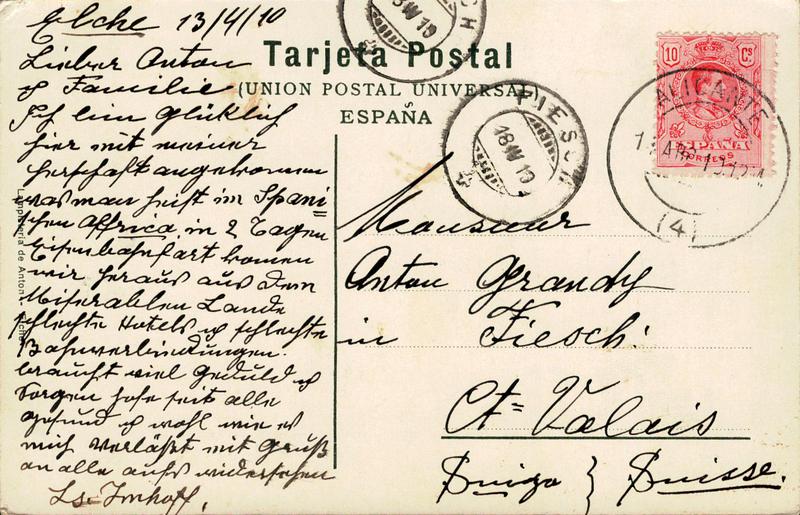 Elche 13/4/10
Lieber Anton
& Familie
Ich bin glücklich
hier mit meiner
herschaft angekommen
was man heist im Spani-
schen Affrica, in 2 Tagen
Eisenbahnfart komen
wir heraus aus dem
Miserablen Lande
schlechte Hotels & schlechte
Bahnverbindungen.
braucht viel Geduld &
Sorgen hofe seit alle
gesund & wohl wie es
mich verläßt mit Gruß
an alle aufs widersehen
Ls. Imhoff.
Tarjeta Postal
(UNION POSTAL UNIVERSAL)
ESPAÑA
de Anton
FIESCH
18 IV 10
10 Cs
ESPAÑA
CORREOS
ALICANTE
(4)
Monsieur
Anton Grandy
in Fiesch.
Ct= Valais
Suiza } Suisse.